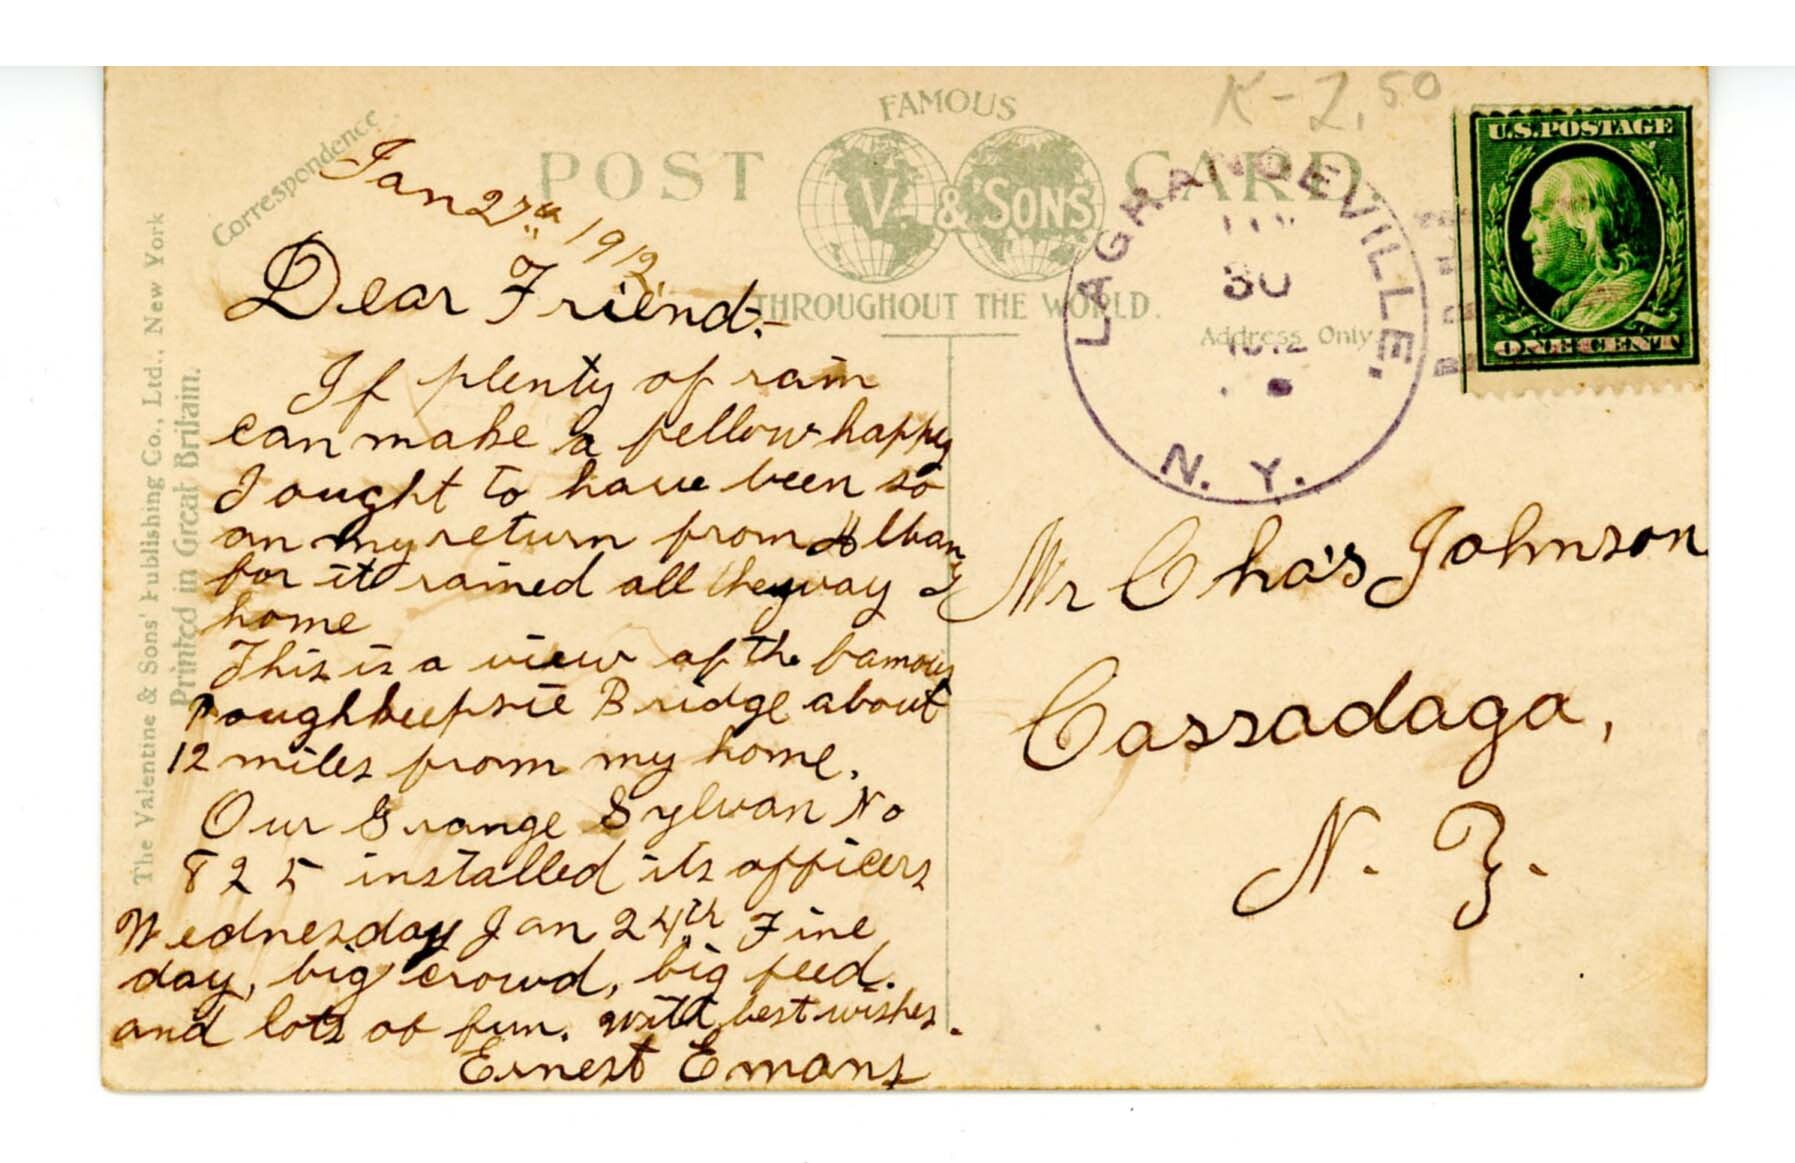 K-2.50
FAMOUS
POST CARD.
V. & SONS
THROUGHOUT THE WORLD.
Correspondence
Address Only
U.S. POSTAGE
ONE CENT
LAGRANGEVILLE.
30
1912
N. Y.
The Valentine & Sons' Publishing Co., Ltd., New York
Printed in Great Britain.
Jan 27th 1912
Dear Friend:-
If plenty of rain
can make a fellow happy
I ought to have been so
on my return from Albany
for it rained all the way
home
This is a view of the famous
Poughkeepsie Bridge about
12 miles from my home.
Our Grange Sylvan No
825 installed its officers
Wednesday Jan 24th Fine
day, big crowd, big feed.
and lots of fun. with best wishes.
Ernest Emans
Mr Cha's Johnson
Cassadaga,
N. Y.